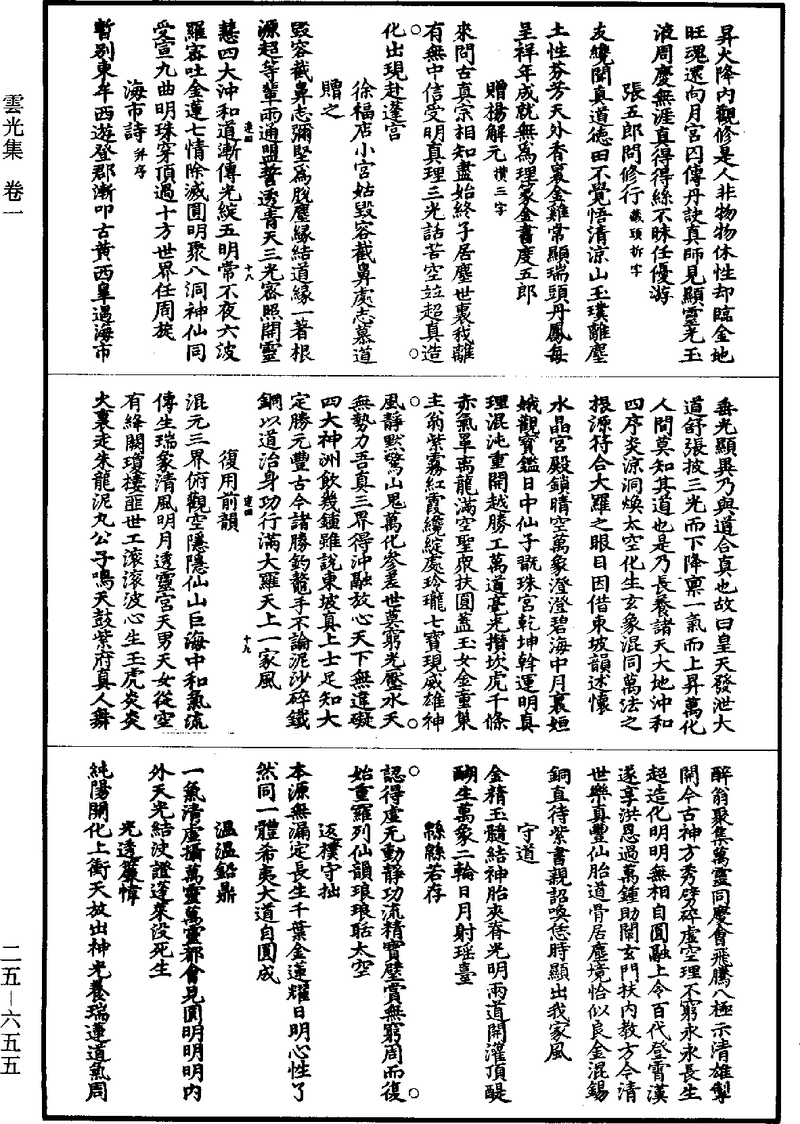 昇火降內觀修是人非物物休性却臨金地
旺魂還向月宮囚傳丹訣真師見顯靈光玉
液周慶無涯真得得絲不昧任優游
張五郎問修行藏頭拆字
友纔聞真道德田不覺悟清涼山玉璞離塵
土性芬芳天外香裏金雞常顯瑞頭丹鳳每
呈祥年成就無為理篆金書度五郎
贈楊解元攢三字
來問古真宗相知盡始終子居塵世裏我離
有無中信受明真理三光詰苦空並超真造
化出現赴蓬宮
徐福店小宮姑毀容截鼻處志慕道
贈之
毀容截鼻志彌堅為脫塵緣結道緣一著根
源超等輩兩通盟誓透青天三光密照開靈
慧四大沖和道漸傳光綻五明常不夜六波
羅審吐金蓮七情除滅圓明聚八洞神仙同
受宣九曲明珠穿頂過十方世界任周旋
海市詩并序
暫別東牟西遊登郡漸叩古黃西皐遇海市
垂光顯異乃與道合真也故曰皇天發泄大
道舒張披三光而下降稟一氣而上昇萬化
人間莫知其道也是乃長養諸天大地沖和
四序炎涼洞煥太空化生玄象混同萬法之
根源符合大羅之眼目因借東坡韻述懷
水晶宮殿鎖晴空萬象澄澄碧海中月裏姮
娥觀寶鑑日中仙子翫珠宮乾坤斡運明真
理混沌重開越勝工萬道毫光攢坎虎千條
赤氣罩离龍滿空聖眾扶圓蓋玉女金童集
主翁紫霧紅霞纔綻處玲瓏七寶現威雄神
風靜默驚山鬼萬化參差世莫窮光壓水天
無勢力吾真三界得沖融放心天下無違礙
四大神洲飲幾鍾雖說東坡真上士足知大
定勝元豐古今諸勝釣鼇手不論泥沙碎鐵
銅以道治身功行滿大羅天上一家風
復用前韻
混元三界俯觀空隱隱仙山巨海中和氣流
傳生瑞象清風明月透靈宮天男天女從空
有絳闕瓊樓匪世工滾滾波心生玉虎炎炎
火裏走朱龍泥丸公子鳴天鼓紫府真人舞
醉翁聚集萬靈同慶會飛騰八極示清雄掣
開今古神方秀劈碎虛空理不窮永永長生
超造化明明無相自圓融上令百代登霄漢
遂享洪恩過萬鍾助闡玄門扶內教方今清
世樂真豐仙胎道骨居塵境恰似良金混錫
銅直待紫書親詔喚恁時顯出我家風
守道
金精玉髓結神胎夾脊光明兩道開灌頂醍
醐生萬象二輪日月射瑤臺
緜緜若存
認得虛无動靜功流精寶璧賞無窮周而復
始重羅列仙韻琅琅聒太空
返樸守拙
本源無漏定長生千葉金蓮耀日明心性了
然同一體希夷大道自圓成
溫溫鉛鼎
一氣清虛攝萬靈萬靈都會見圓明明明內
外天光結決證蓬萊沒死生
光透簾幃
純陽開化上衝天放出神光養瑞蓮道氣周
雲光集 卷一
二五—六五五